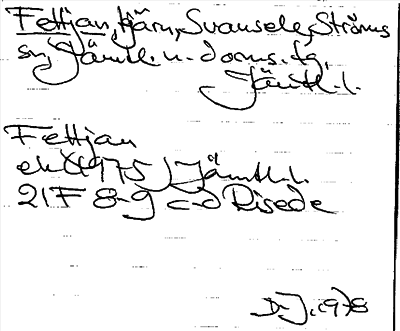 Fettjan, tjärn, Svansele, Ströms
sn, Jämtl. n. doms. tg,
Jämtl. l.
Fettjan
ek (1975) Jämtl. l.
21F 8-9 c-d Risede
D.J. 1978